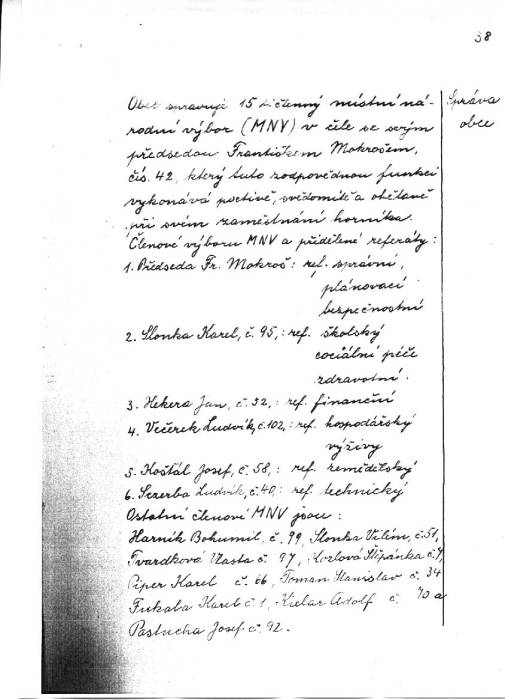 38
Správa
obce
Obec spravuje 15 ti členný místní ná-
rodní výbor (MNV) v čele se svým
předsedou Františkem Mokrošem,
čís. 42, který tuto zodpovědnou funkci
vykonává poctivě, svědomitě a obětavě
při svém zaměstnání horníka.
Členové výboru MNV a přidělené referáty:
1. Předseda Fr. Mokroš: ref. správní,
plánovací
bezpečnostní
2. Slonka Karel, č. 95,: ref. školský
sociální péče
zdravotní.
3. Hekera Jan, č. 32,: ref. finanční
4. Večerek Ludvík, č. 102,: ref. hospodářský
výživy
5. Koštál Josef, č. 58,: ref. zemědělský
6. Szerba Ludvík, č. 40,: ref. technický
Ostatní členové MNV jsou:
Harník Bohumil, č. 99, Slonka Vilém, č. 51,
Tvardková Vlasta č. 97, Kozlová Štěpánka č.
Piper Karel č. 66, Toman Stanislav č. 34
Fukala Karel č. 1, Kielar Adolf č. 70 a
Pastucha Josef č. 92.